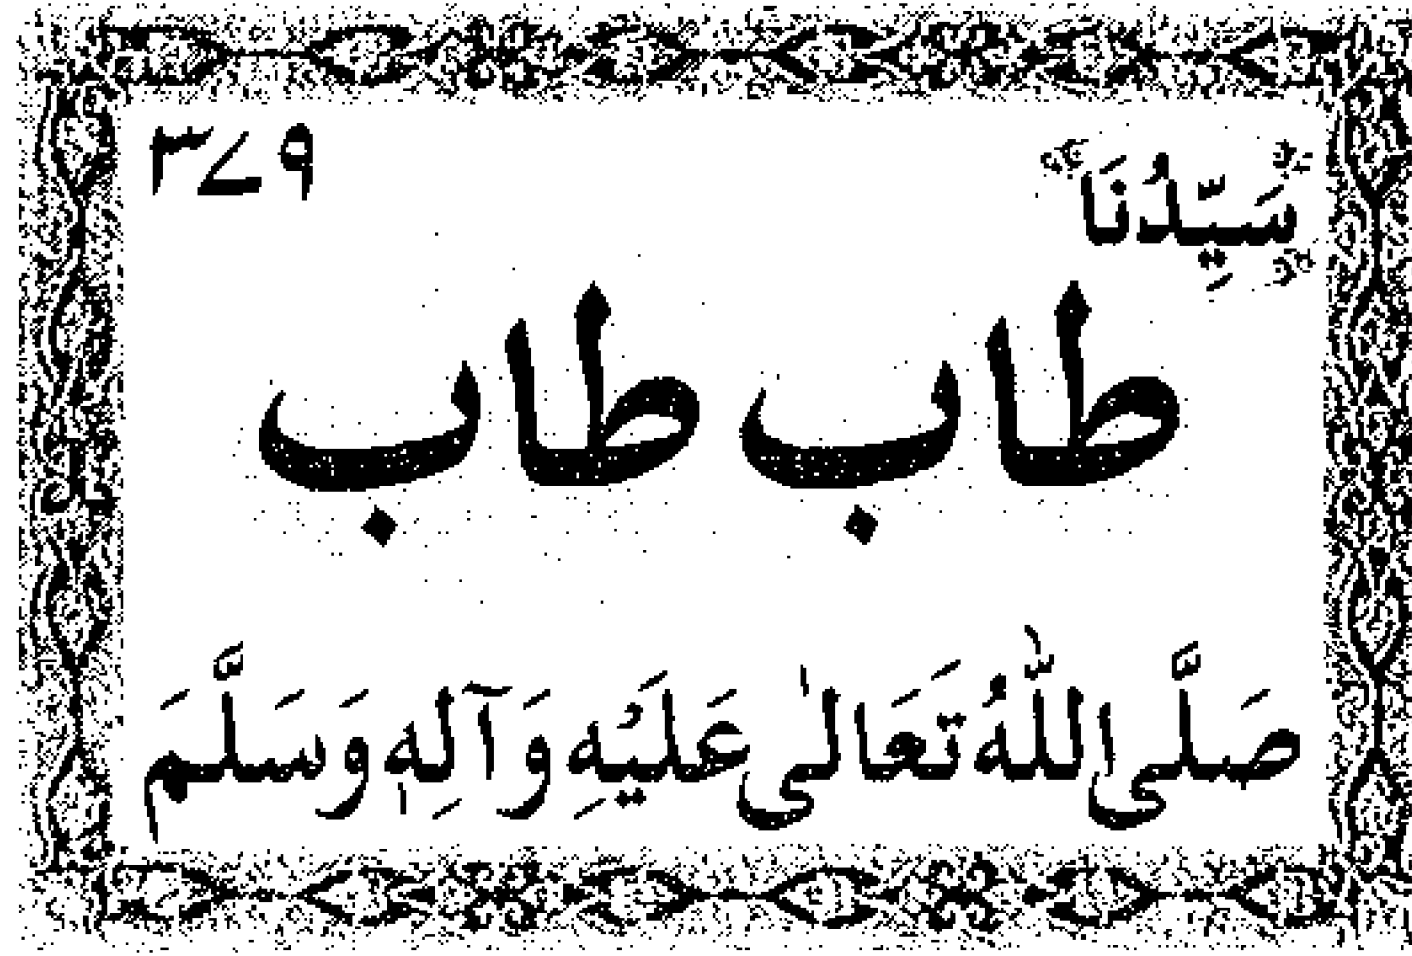 سَيِّدُنَا ۳۷۹
طاب طاب
صَلَّى اللّٰهُ تَعَالٰى عَلَيْهِ وَآلِهٖ وَسَلَّمَ